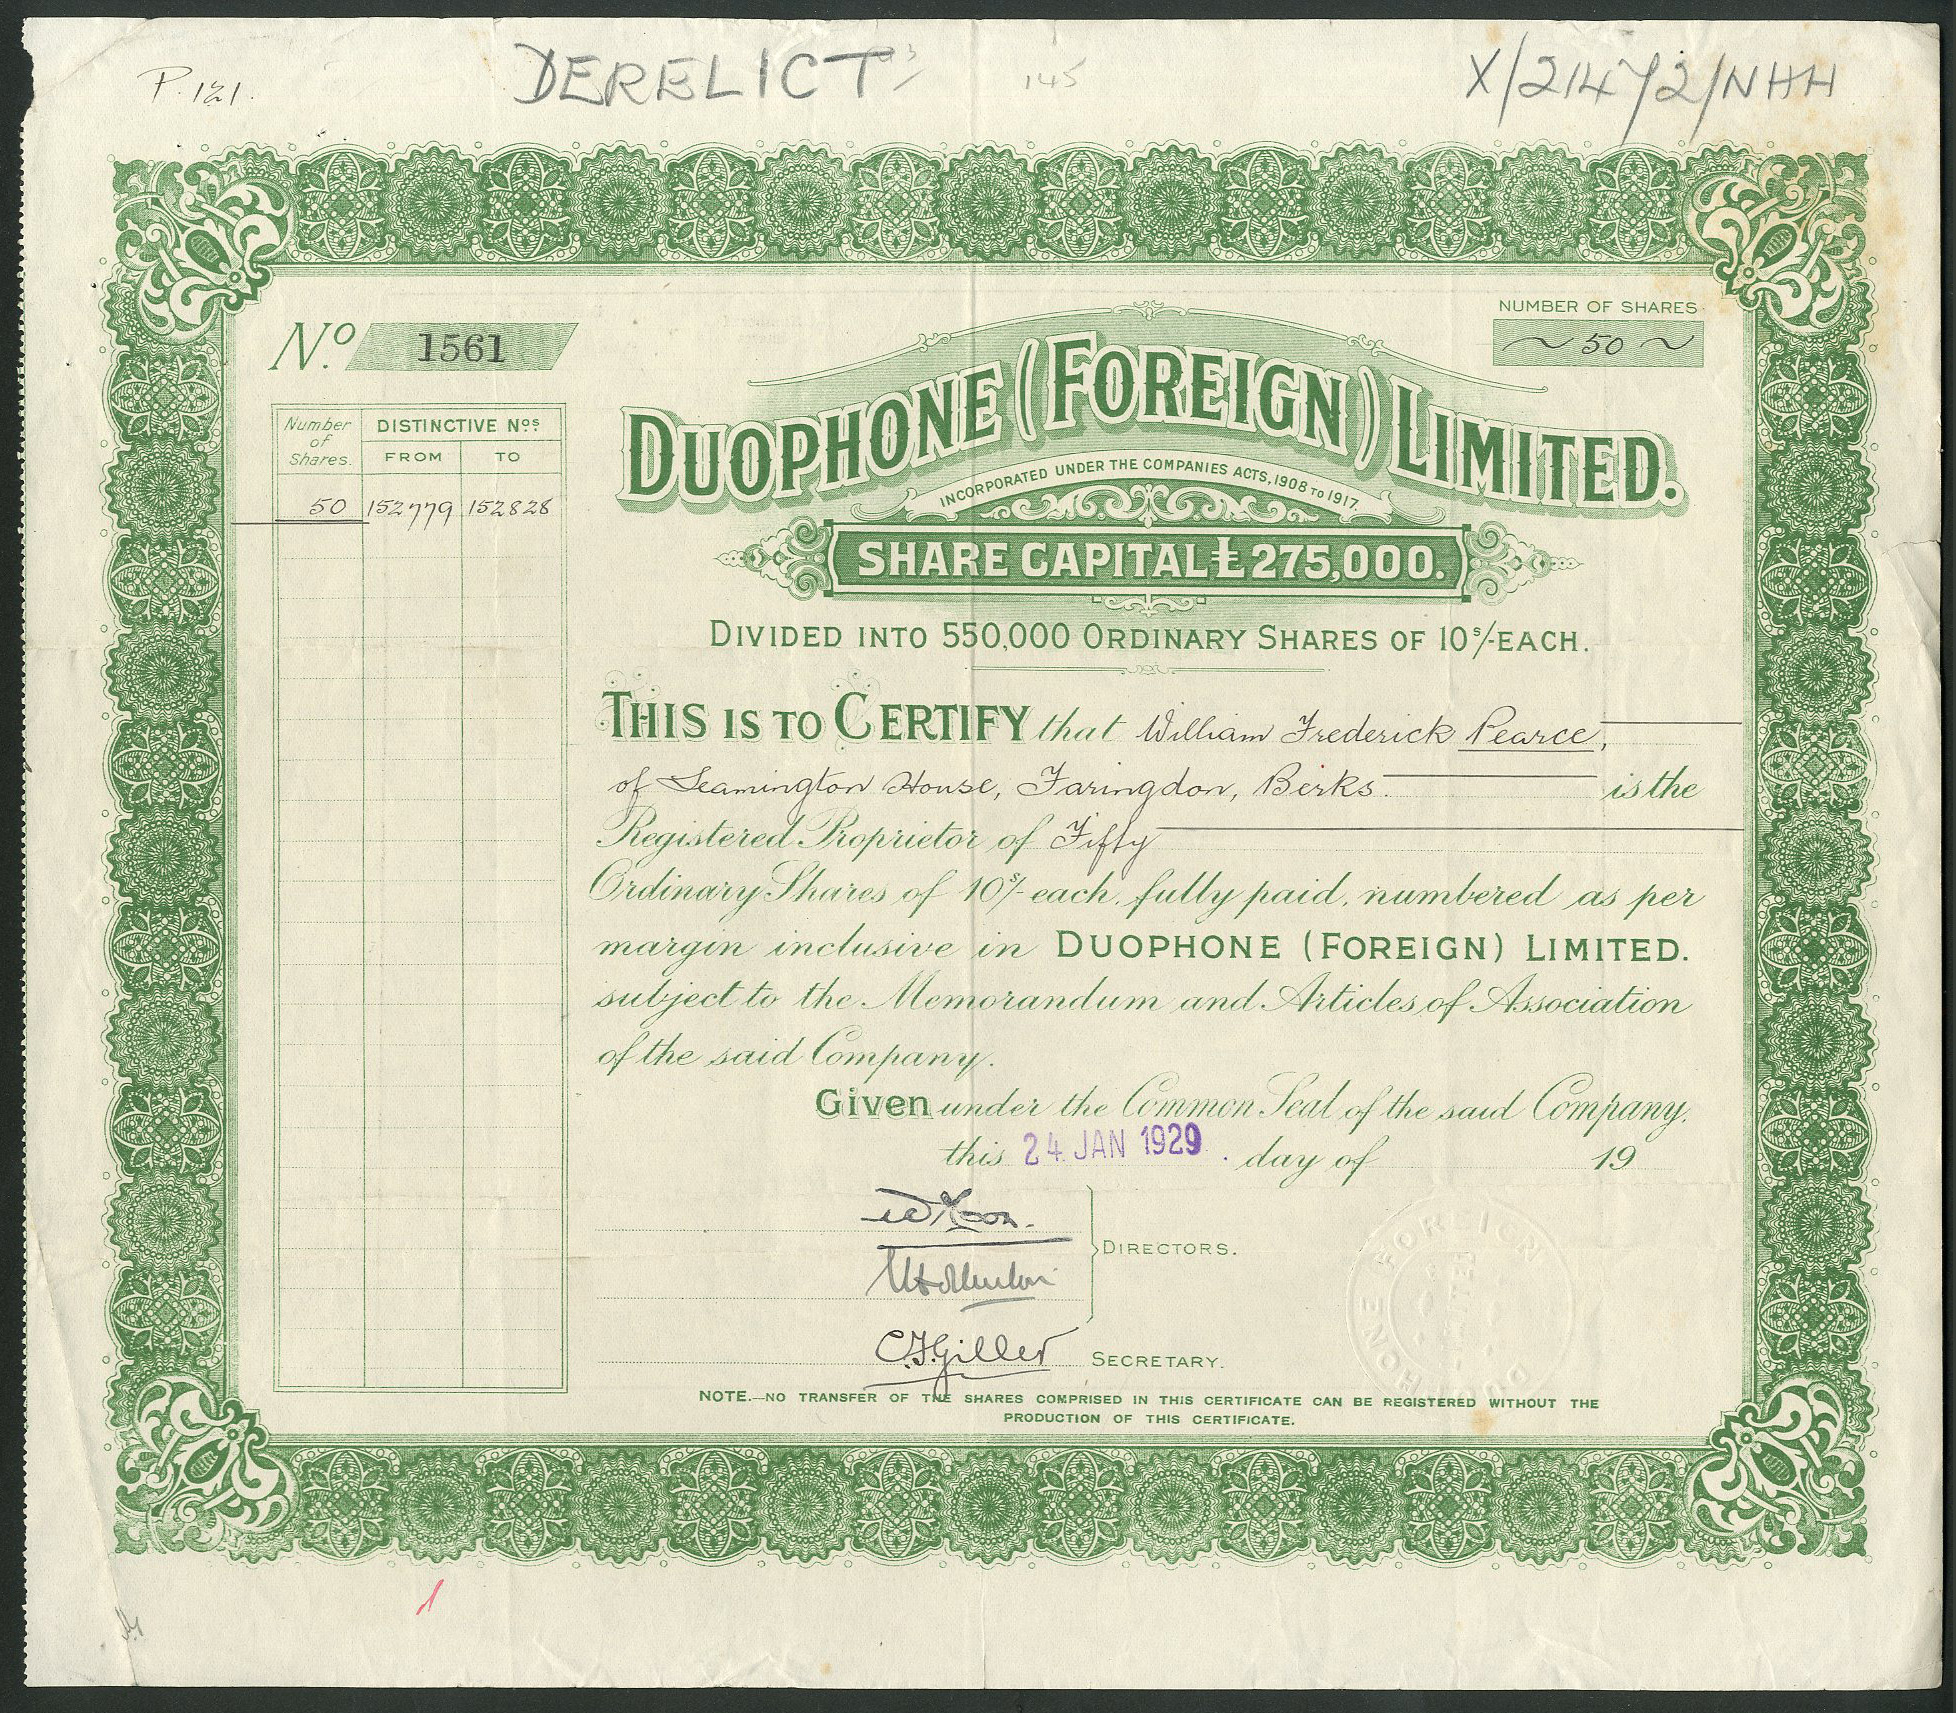 P. 121.
DERELICT
145
X/21472/NHH
No. 1561
NUMBER OF SHARES
~ 50 ~
DUOPHONE (FOREIGN) LIMITED.
INCORPORATED UNDER THE COMPANIES ACTS, 1908 TO 1917.
SHARE CAPITAL £275,000.
DIVIDED INTO 550,000 ORDINARY SHARES OF 10s/- EACH.
Number of Shares. DISTINCTIVE Nos.
FROM TO
50 152779 152828
THIS IS TO CERTIFY that William Frederick Pearce,
of Leamington House, Faringdon, Berks. is the
Registered Proprietor of Fifty
Ordinary Shares of 10s/- each, fully paid, numbered as per
margin inclusive in DUOPHONE (FOREIGN) LIMITED.
subject to the Memorandum and Articles of Association
of the said Company.
Given under the Common Seal of the said Company,
this 24 JAN 1929. day of 19
DIRECTORS.
C.F. Giller SECRETARY.
NOTE.—NO TRANSFER OF THE SHARES COMPRISED IN THIS CERTIFICATE CAN BE REGISTERED WITHOUT THE
PRODUCTION OF THIS CERTIFICATE.